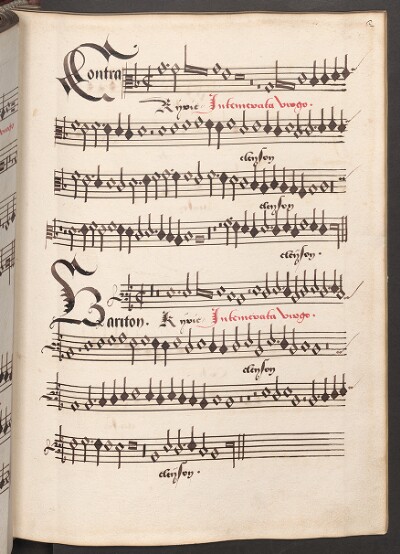 Contra
Kyrie Intemerata Virgo.
eleyson
eleyson
eleyson.
Bariton. Kyrie Intemerata Virgo.
eleyson
eleyson.